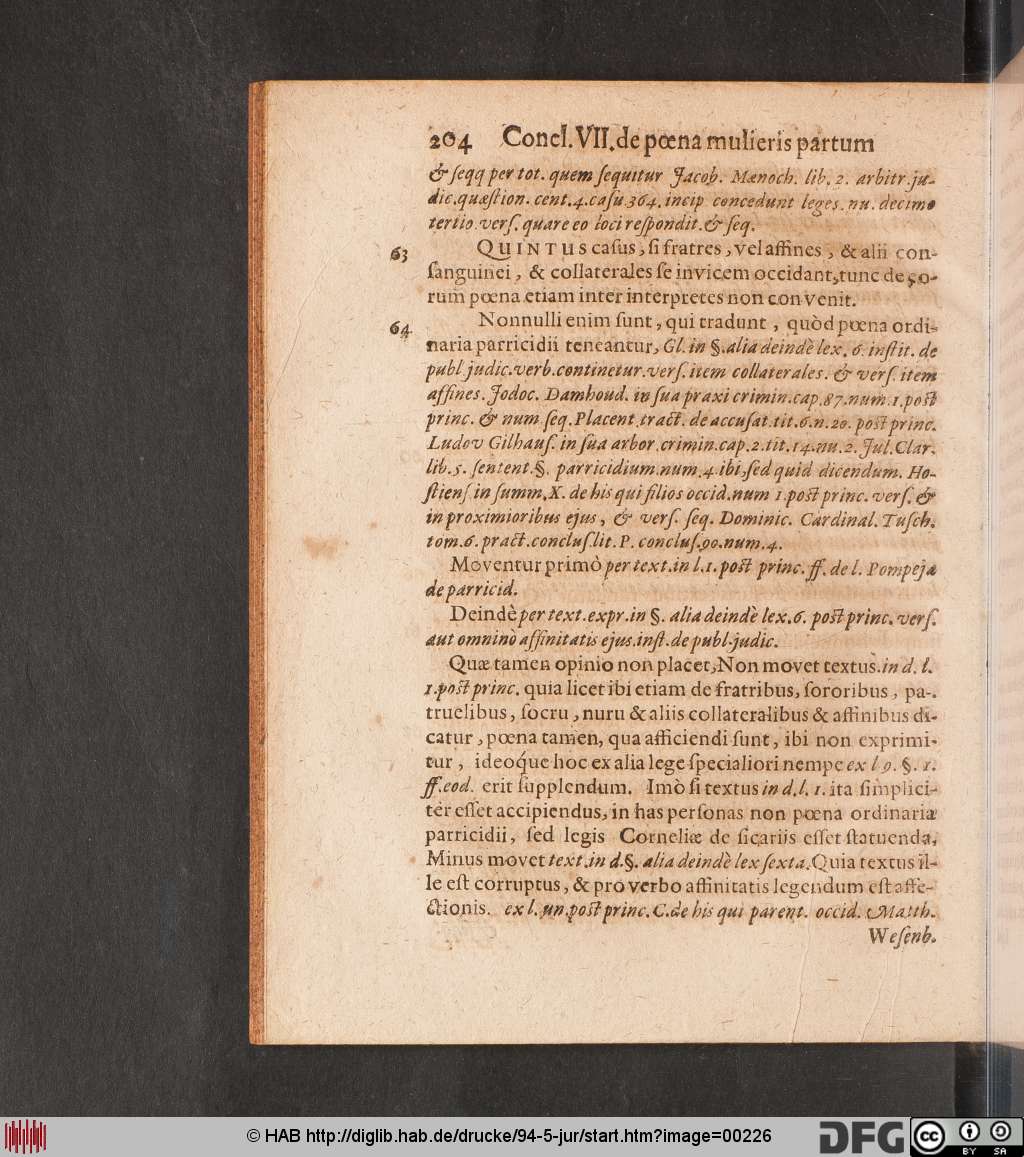 204 Concl. VII. de pœna mulieris partum
& ſeqq per tot. quem ſequitur Jacob. Mænoch. lib. 2. arbitr. ju-
dic. quæſtion. cent. 4. caſu 364. incip concedunt leges. nu. decimo
tertio. verſ. quare eo loci reſpondit. & ſeq.
63 QUINTUS caſus, ſi fratres, vel affines, & alii con-
ſanguinei, & collaterales ſe invicem occidant, tunc de eo-
rum pœna etiam inter interpretes non convenit.
64 Nonnulli enim ſunt, qui tradunt, quòd pœna ordi-
naria parricidii teneantur, Gl. in §. alia deindè lex. 6. inſtit. de
publ judic. verb. continetur. verſ. item collaterales. & verſ. item
affines. Jodoc. Damhoud. in ſua praxi crimin. cap. 87. num. 1. poſt
princ. & num ſeq. Placent. tract. de accuſat. tit. 6. n. 20. poſt princ.
Ludov Gilhauſ. in ſua arbor. crimin. cap. 2. tit. 14. nu. 2. Jul. Clar.
lib. 5. ſentent. §. parricidium. num. 4. ibi, ſed quid dicendum. Ho-
ſtienſ. in ſumm. X. de his qui filios occid. num 1. poſt princ. verſ. &
in proximioribus ejus, & verſ. ſeq. Dominic. Cardinal. Tuſch.
tom. 6. pract. concluſ. lit. P. concluſ. 90. num. 4.
Moventur primò per text. in l. 1. poſt princ. ff. de l. Pompeja
de parricid.
Deindè per text. expr. in §. alia deindè lex. 6. poſt princ. verſ.
aut omninò affinitatis ejus. inſt. de publ. judic.
Quæ tamen opinio non placet, Non movet textus. in d. l.
1. poſt princ. quia licet ibi etiam de fratribus, ſororibus, pa-
truelibus, ſocru, nuru & aliis collateralibus & affinibus di-
catur, pœna tamen, qua afficiendi ſunt, ibi non exprimi-
tur, ideoq́ue hoc ex alia lege ſpecialiori nempe ex l 9. §. 1.
ff. eod. erit ſupplendum. Imò ſi textus in d. l. 1. ita ſimplici-
ter eſſet accipiendus, in has perſonas non pœna ordinaria
parricidii, ſed legis Corneliæ de ſicariis eſſet ſtatuenda.
Minus movet text. in d. §. alia deindè lex ſexta. Quia textus il-
le eſt corruptus, & pro verbo affinitatis legendum eſt affe-
ctionis. ex l. un. poſt princ. C. de his qui parent. occid. Matth.
Weſenb.
© HAB http://diglib.hab.de/drucke/94-5-jur/start.htm?image=00226
DFG
cc BY SA